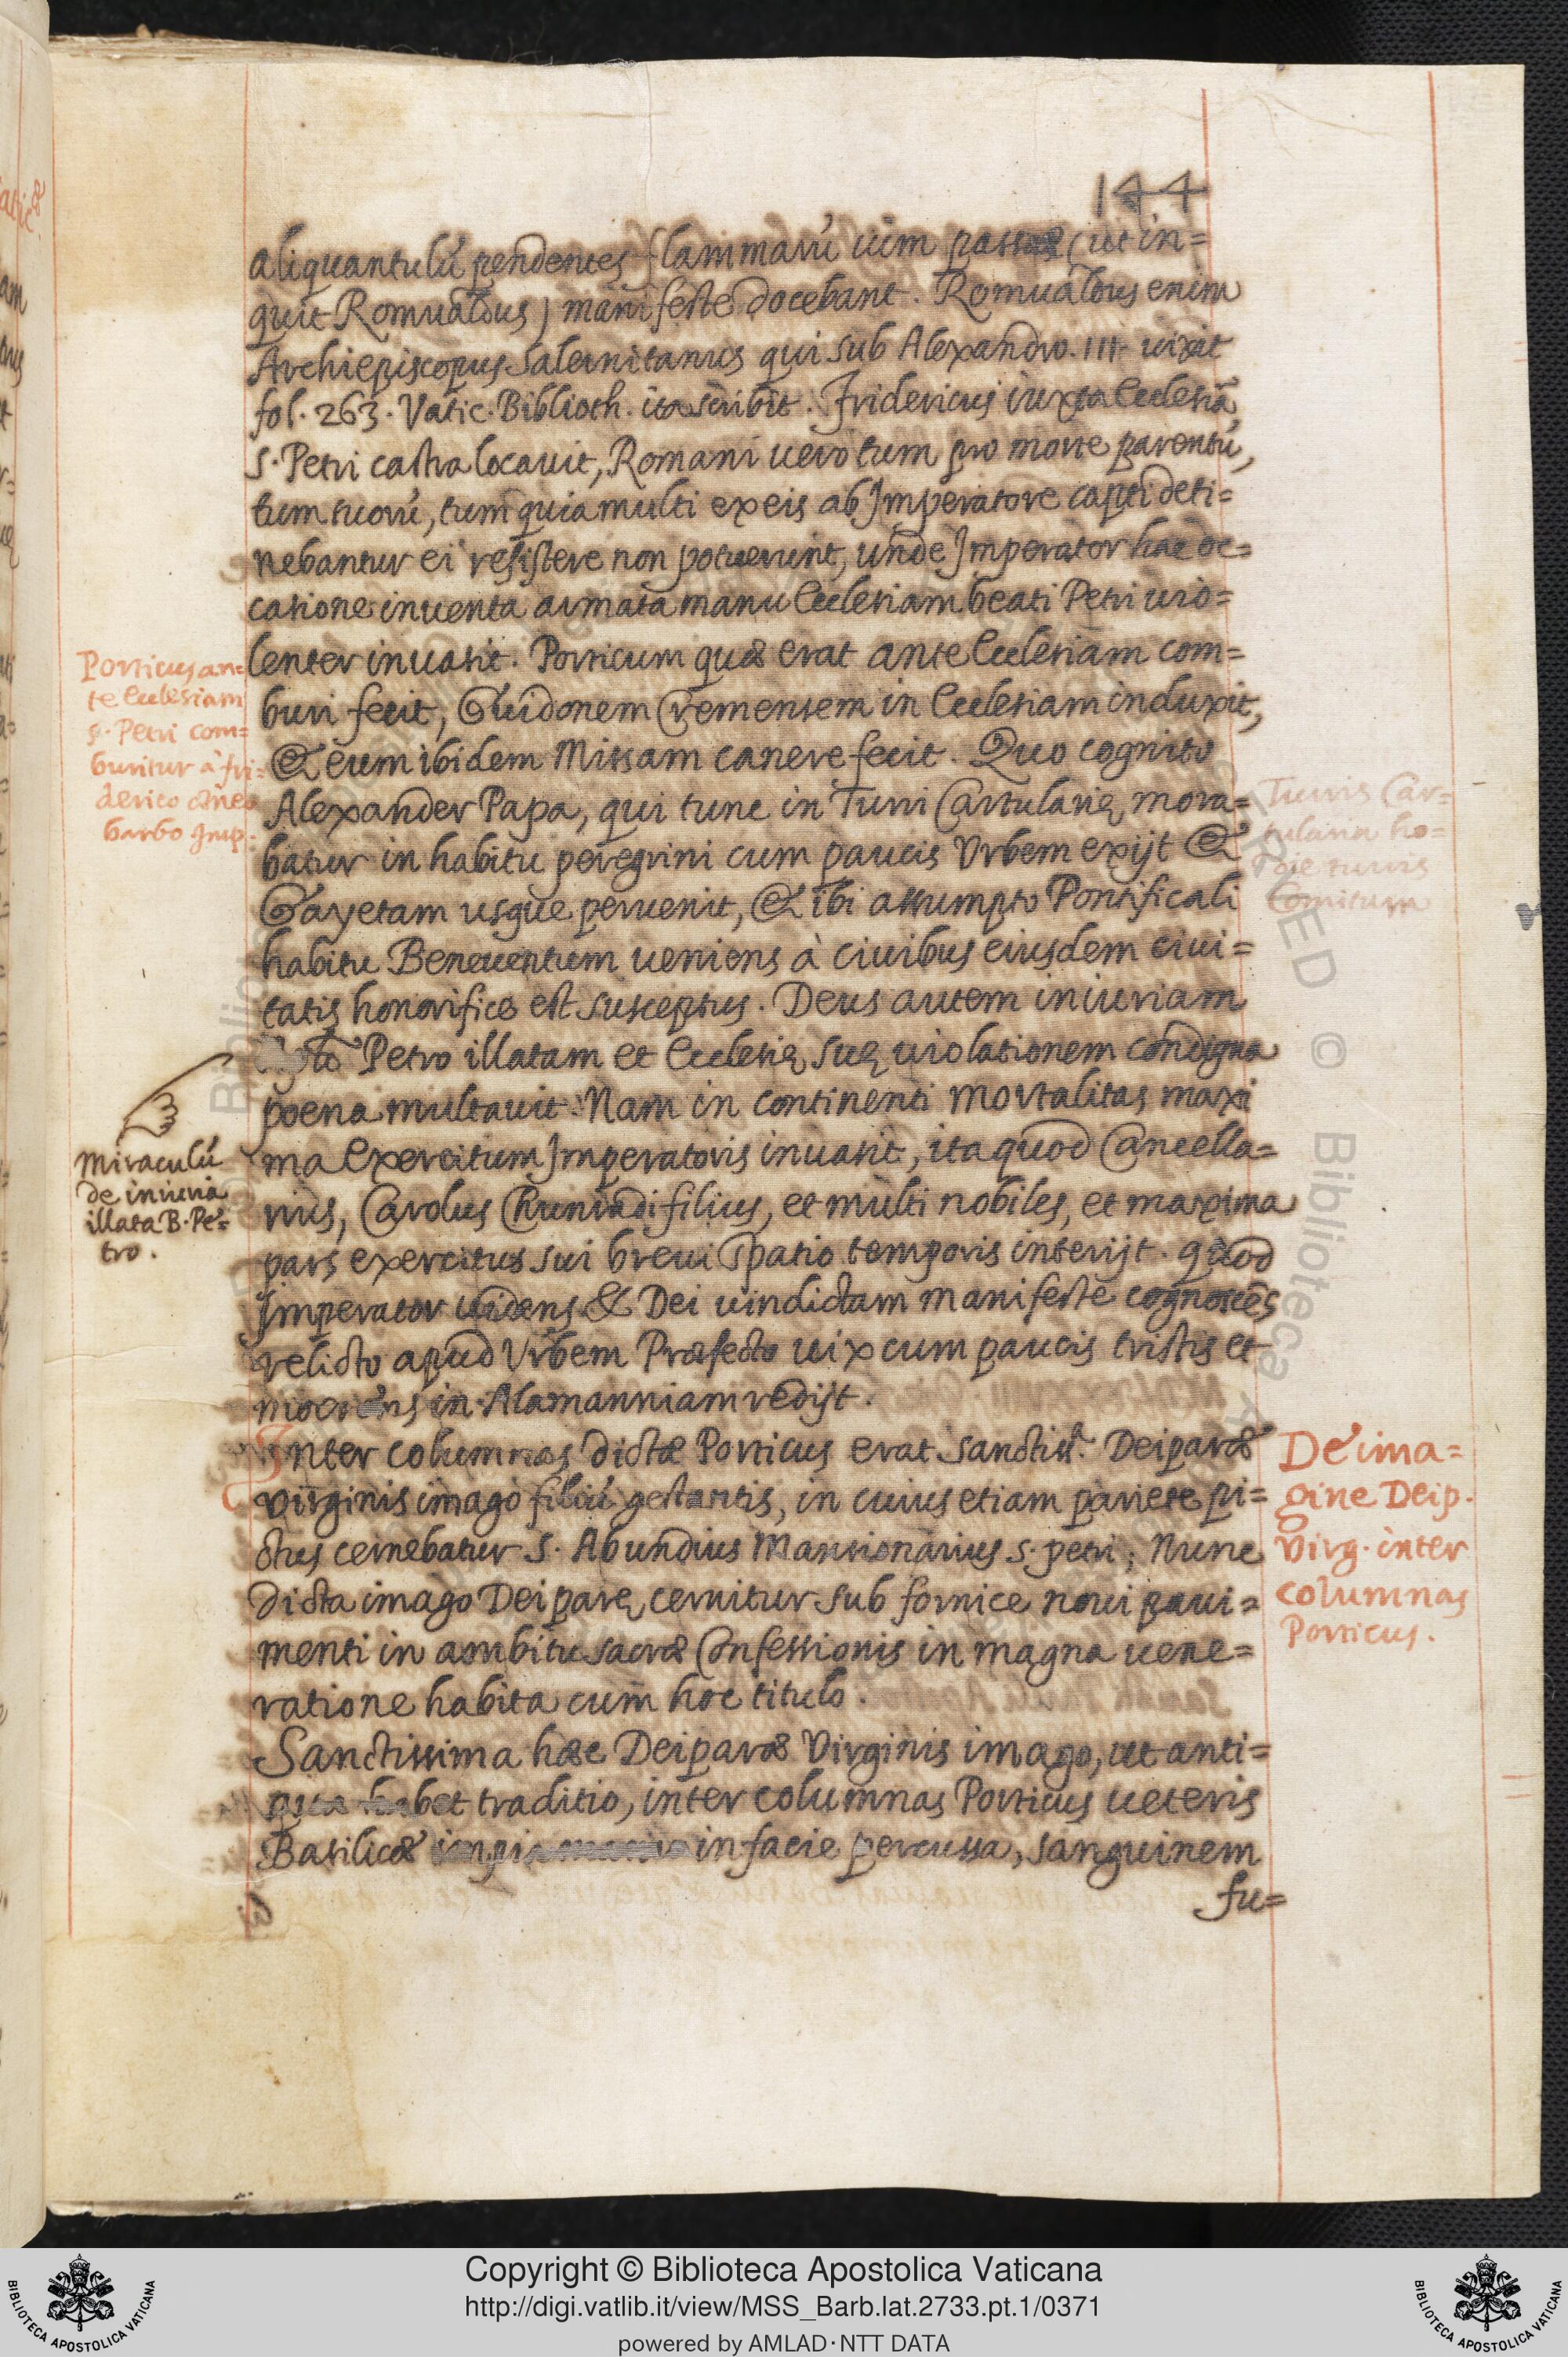 144
aliquantulū pendentes flammarū uim passae (ut in=
quit Romualdus) manifeste docebant. Romualdus enim
Archiepiscopus Salernitanus qui sub Alexandro. III. uixit
fol. 263. Vatic. Biblioth. ita scribit. Fridericus iuxta Ecclesiã
S. Petri castra locauit, Romani uero tum pro morte parentū,
tum suorū, tum quia multi ex eis ab Imperatore capti deti=
nebantur ei resistere non potuerunt, unde Imperator hac oc=
casione inuenta armata manu Ecclesiam beati Petri uio=
lenter inuasit. Porticum quae erat ante Ecclesiam com=
buri fecit, Guidonem Cremensem in Ecclesiam induxit,
& eum ibidem Missam canere fecit. Quo cognito
Alexander Papa, qui tunc in Turri Cartularię mora=
batur in habitu peregrini cum paucis Vrbem exijt &
Gayetam usque peruenit, & ibi assumpto Pontificali
habitu Beneuentum ueniens à ciuibus eiusdem ciui=
tatis honorifice est susceptus. Deus autem iniuriam
Petro illatam et Ecclesię suę uiolationem condigna
poena multauit. Nam in continenti mortalitas maxi
ma Exercitum Imperatoris inuasit, ita quod Cancella=
rius, Carolus Chunradi filius, et multi nobiles, et maxima
pars exercitus sui breui spatio temporis interijt. quod
Imperator uidens & Dei uindictam manifeste cognoscēs
relicto apud Vrbem Praefecto uix cum paucis tristis et
moerens in Alamanniam redijt.
Inter columnas dictae Porticus erat Sanctiss. Deiparae
Virginis imago filiū gestantis, in cuius etiam pariete pi=
ctus cernebatur S. Abundius Mansionarius S. petri; Nunc
dicta imago Deiparę cernitur sub fornice noui paui=
menti in ambitu sacrae Confessionis in magna uene=
ratione habita cum hoc titulo.
Sanctissima haec Deiparae Virginis imago, ut anti=
qua habet traditio, inter columnas Porticus ueteris
Basilicae impia manu in facie percussa, sanguinem
fu=
Porticus an=
te Ecclesiam
S. Petri com=
buritur à fri=
derico Æneo
barbo Imp.
Miraculū
de iniuria
illata B. Pe=
tro.
Turris Car=
tularia ho=
die turris
Comitum
De ima=
gine Deip.
Virg. inter
columnas
Porticus.
Copyright © Biblioteca Apostolica Vaticana
http://digi.vatlib.it/view/MSS_Barb.lat.2733.pt.1/0371
powered by AMLAD·NTT DATA
BIBLIOTECA APOSTOLICA VATICANA
BIBLIOTECA APOSTOLICA VATICANA